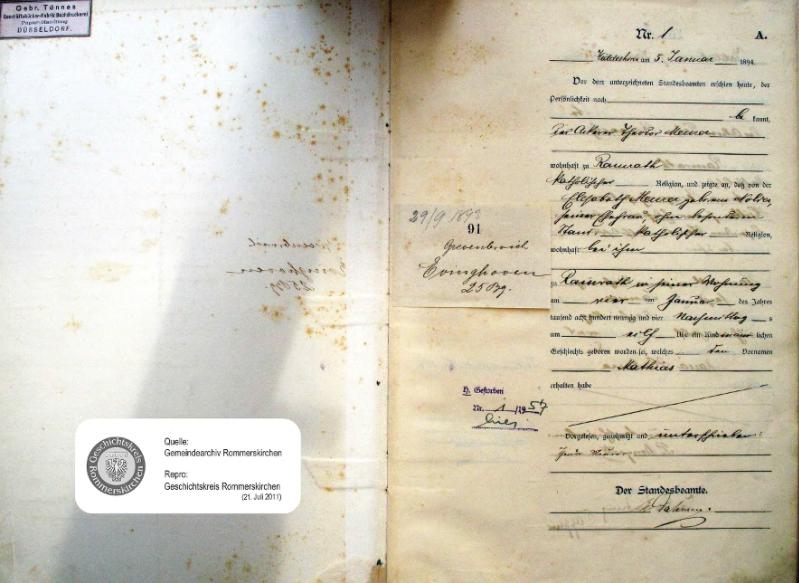 Gebr. Tönnes
Geschäftsbücher-Fabrik Buchdruckerei
Papierhandlung
DÜSSELDORF.
29/9 1893
91
Grevenbroich
Evinghoven
25 Bg.
H. Gestorben
Nr. 1 /1957
Nr. 1 A.
am 5. Januar 1894.
Vor dem unterzeichneten Standesbeamten erschien heute, der
Persönlichkeit nach
be kannt,
der Ackerer Theodor
wohnhaft zu Ramrath
katholischer Religion, und zeigte an, daß von der
Elisabeth geborenen
seiner Ehefrau, ohne besonderen
Stand katholischer Religion,
wohnhaft bei ihm
zu Ramrath in seiner Wohnung
am vier ten Januar des Jahres
tausend acht hundert neunzig und vier Nachmittag s
um elf Uhr ein Kind männ lichen
Geschlechts geboren worden sei, welches den Vornamen
Mathias
erhalten habe
Vorgelesen, genehmigt und unterschrieben
Der Standesbeamte.
Geschichtskreis
Rommerskirchen
Quelle:
Gemeindearchiv Rommerskirchen
Repro:
Geschichtskreis Rommerskirchen
(21. Juli 2011)